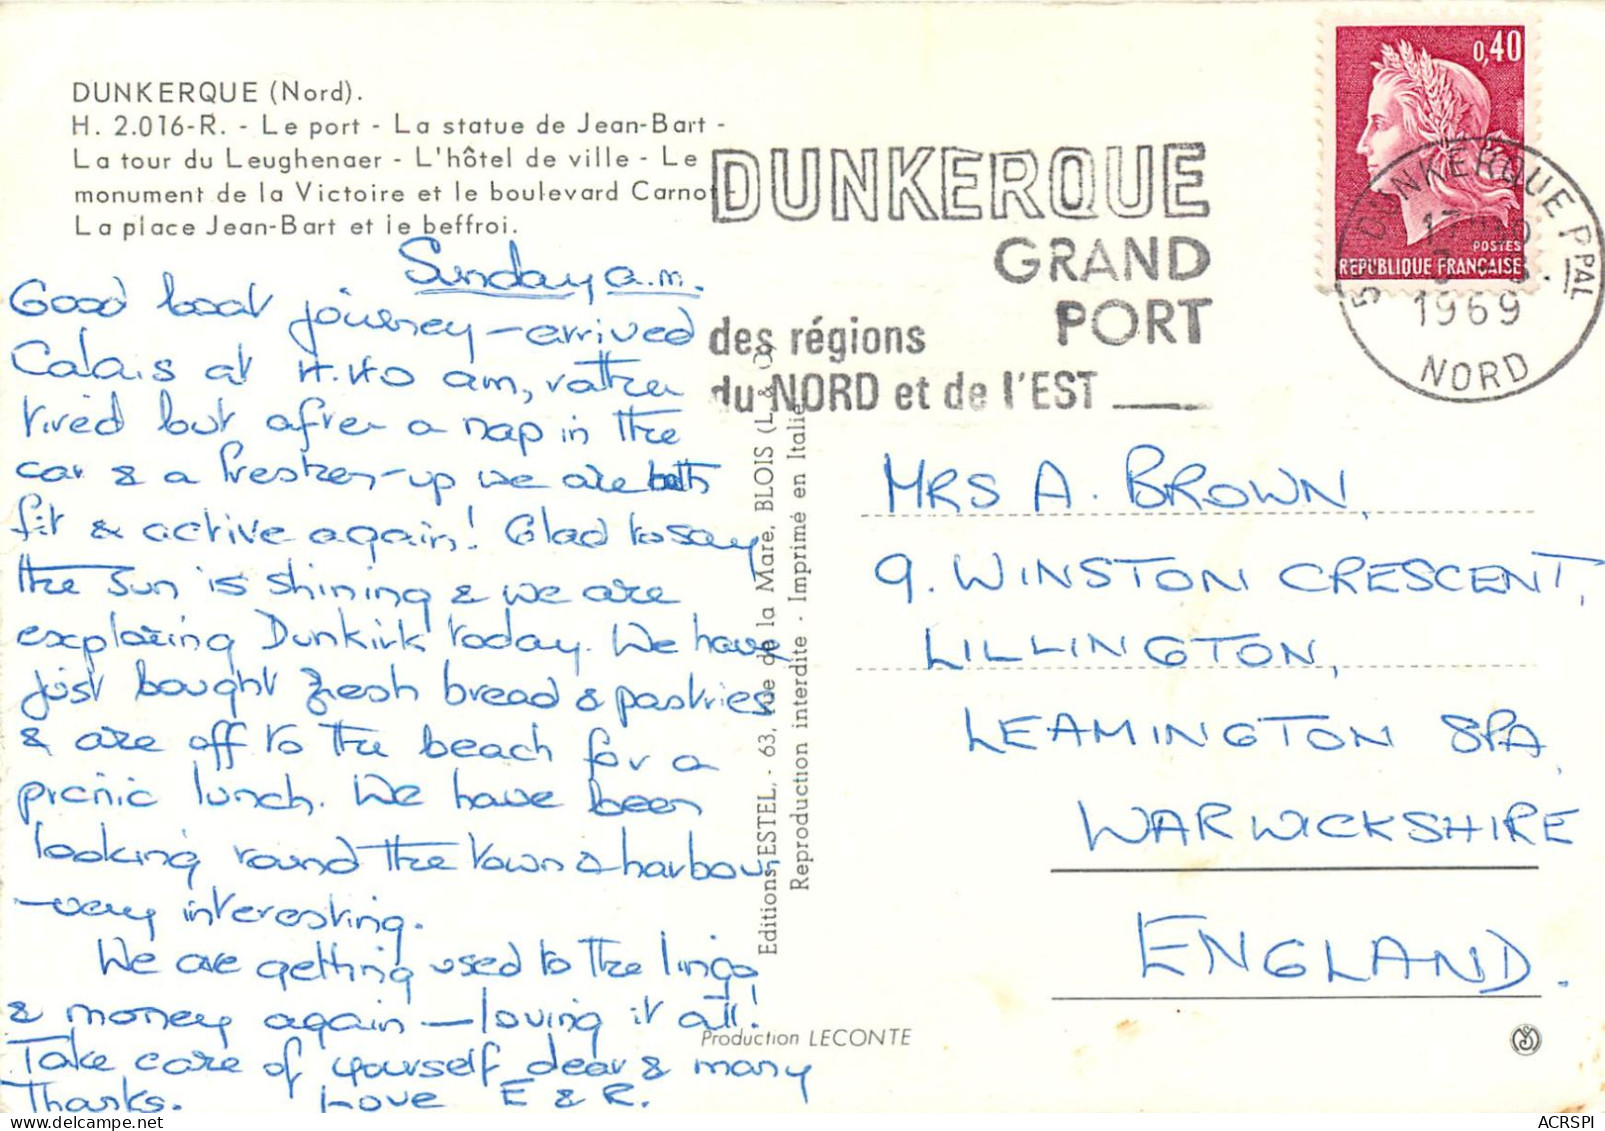 DUNKERQUE (Nord).
H. 2.016-R. - Le port - La statue de Jean-Bart -
La tour du Leughenaer - L'hôtel de ville - Le
monument de la Victoire et le boulevard Carnot -
La place Jean-Bart et le beffroi.
Sunday a.m.
Good boat journey - arrived
Calais at 4.40 am, rather
tired but after a nap in the
car & a freshen-up we are both
fit & active again! Glad to say
the sun is shining & we are
exploring Dunkirk today. We have
just bought fresh bread & pastries
& are off to the beach for a
picnic lunch. We have been
looking round the town & harbour
- very interesting.
We are getting used to the lingo
& money again - loving it all!
Take care of yourself dear & many
Thanks. Love E & R.
Editions ESTEL, - 63, rue de la Mare, BLOIS (L. & C.)
Reproduction interdite - Imprimé en Italie
Production LECONTE
DUNKERQUE
GRAND
PORT
des régions
du NORD et de l'EST
0,40
POSTES
REPUBLIQUE FRANÇAISE
DUNKERQUE PPAL
1969
NORD
MRS A. BROWN,
9. WINSTON CRESCENT,
LILLINGTON,
LEAMINGTON SPA,
WARWICKSHIRE
ENGLAND.
ACRSPI